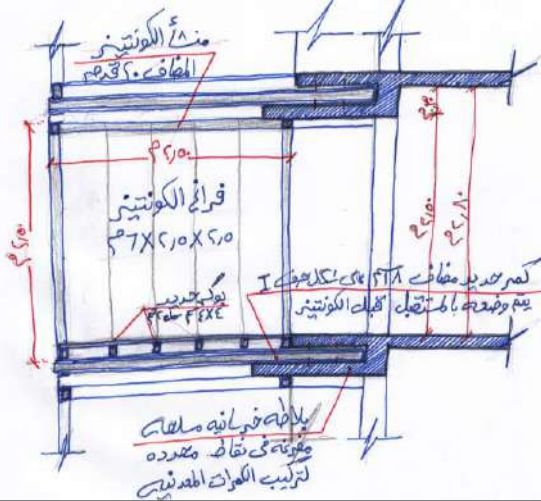 منشأ الكونتينر
المضاف ٢٠ قدم
٢,٥٠م
٢,٥٠م
فراغ الكونتينر
٢,٥ X ٢,٥ X ٦م
٢,٥٠م
٢,٨٠م
كمر حديد مضاف على شكل حرف I
يتم وضعه بالمستقبل الكونتينر
حديد
بلاطه خرسانيه مسلحه
مفرغه فى نقاط محدده
لتركيب الكمرات المعدنيه